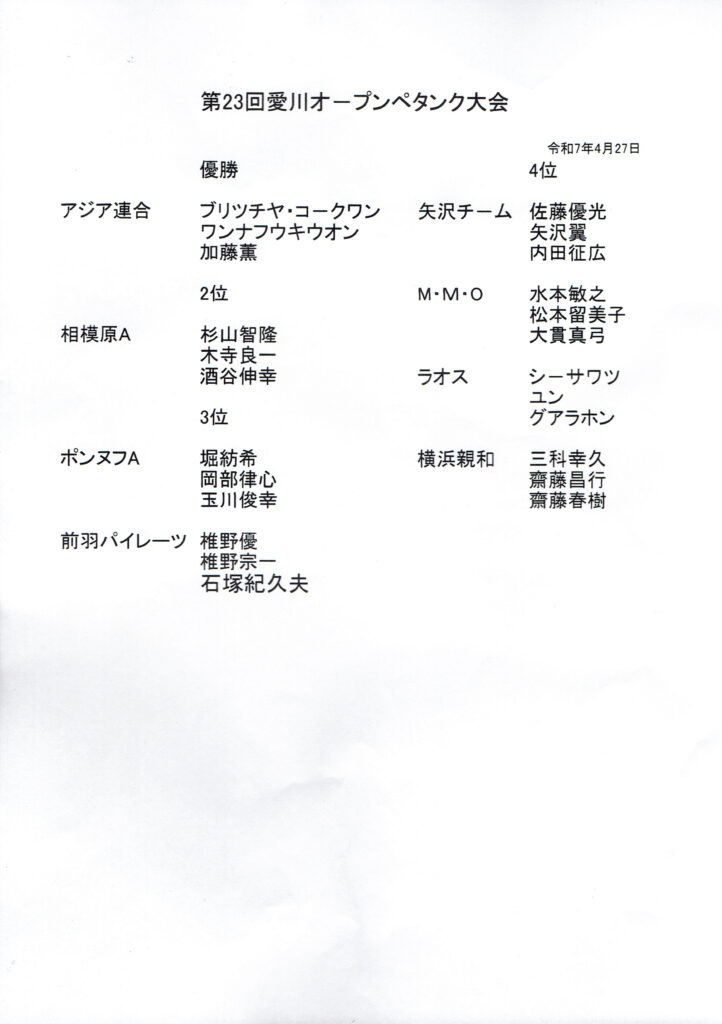 第23回愛川オープンペタンク大会
令和7年4月27日
優勝
アジア連合 ブリツチヤ・コークワン
ワンナフウキウオン
加藤薫
2位
相模原A 杉山智隆
木寺良一
酒谷伸幸
3位
ポンヌフA 堀紡希
岡部律心
玉川俊幸
前羽パイレーツ 椎野優
椎野宗一
石塚紀久夫
4位
矢沢チーム 佐藤優光
矢沢翼
内田征広
M・M・O 水本敏之
松本留美子
大貫真弓
ラオス シーサワツ
ユン
グアラホン
横浜親和 三科幸久
齋藤昌行
齋藤春樹